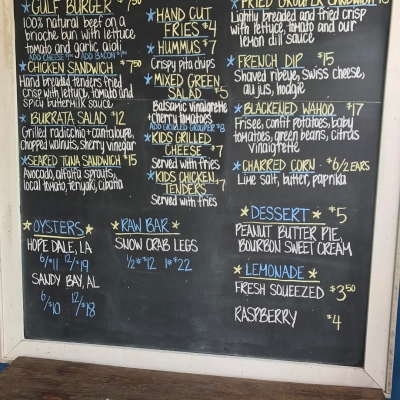 ★ GULF BURGER ★ $7.50
100% natural beef on a
brioche bun with lettuce
tomato and garlic aioli
ADD CHEESE
★ CHICKEN SANDWICH $7.50
Hand breaded tenders fried
crisp with lettuce, tomato and
spicy buttermilk sauce
★ BURRATA SALAD $12
Grilled radicchio + cantaloupe,
chopped walnuts, sherry vinegar
★ SEARED TUNA SANDWICH $15
Avocado, alfalfa sprouts,
local tomato, teriyaki, cibatta
★ HAND CUT
FRIES $4
★ HUMMUS $7
Crispy pita chips
★ MIXED GREEN
SALAD $5
Balsamic vinaigrette
+ cherry tomatoes
ADD GRILLED GROUPER $8
★ KIDS GRILLED
CHEESE $7
Served with fries
★ KIDS CHICKEN
TENDERS $7
Served with fries
★ FRIED GROUPER SANDWICH
Lightly breaded and fried crisp
with lettuce, tomato and our
lemon dill sauce
★ FRENCH DIP $15
Shaved ribeye, swiss cheese,
au jus, hoagie
★ BLACKENED WAHOO $17
Frisee, confit potatoes, baby
tomatoes, green beans, citrus
vinaigrette
★ CHARRED CORN $6/2 EARS
Lime salt, butter, paprika
★ OYSTERS ★
HOPE DALE, LA
6/$11 12/$19
SANDY BAY, AL
6/$10 12/$18
★ RAW BAR ★
SNOW CRAB LEGS
1/2# $12 1# $22
★ DESSERT ★ $5
PEANUT BUTTER PIE,
BOURBON SWEET CREAM
★ LEMONADE ★
FRESH SQUEEZED $3.50
RASPBERRY $4